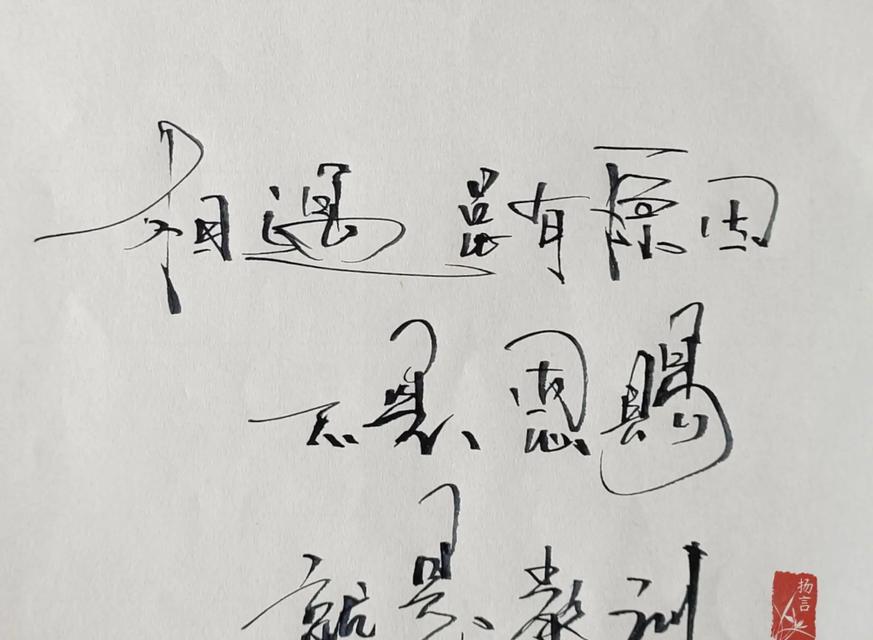 相遇 皆有原因
不是恩賜
就是教训
扬言